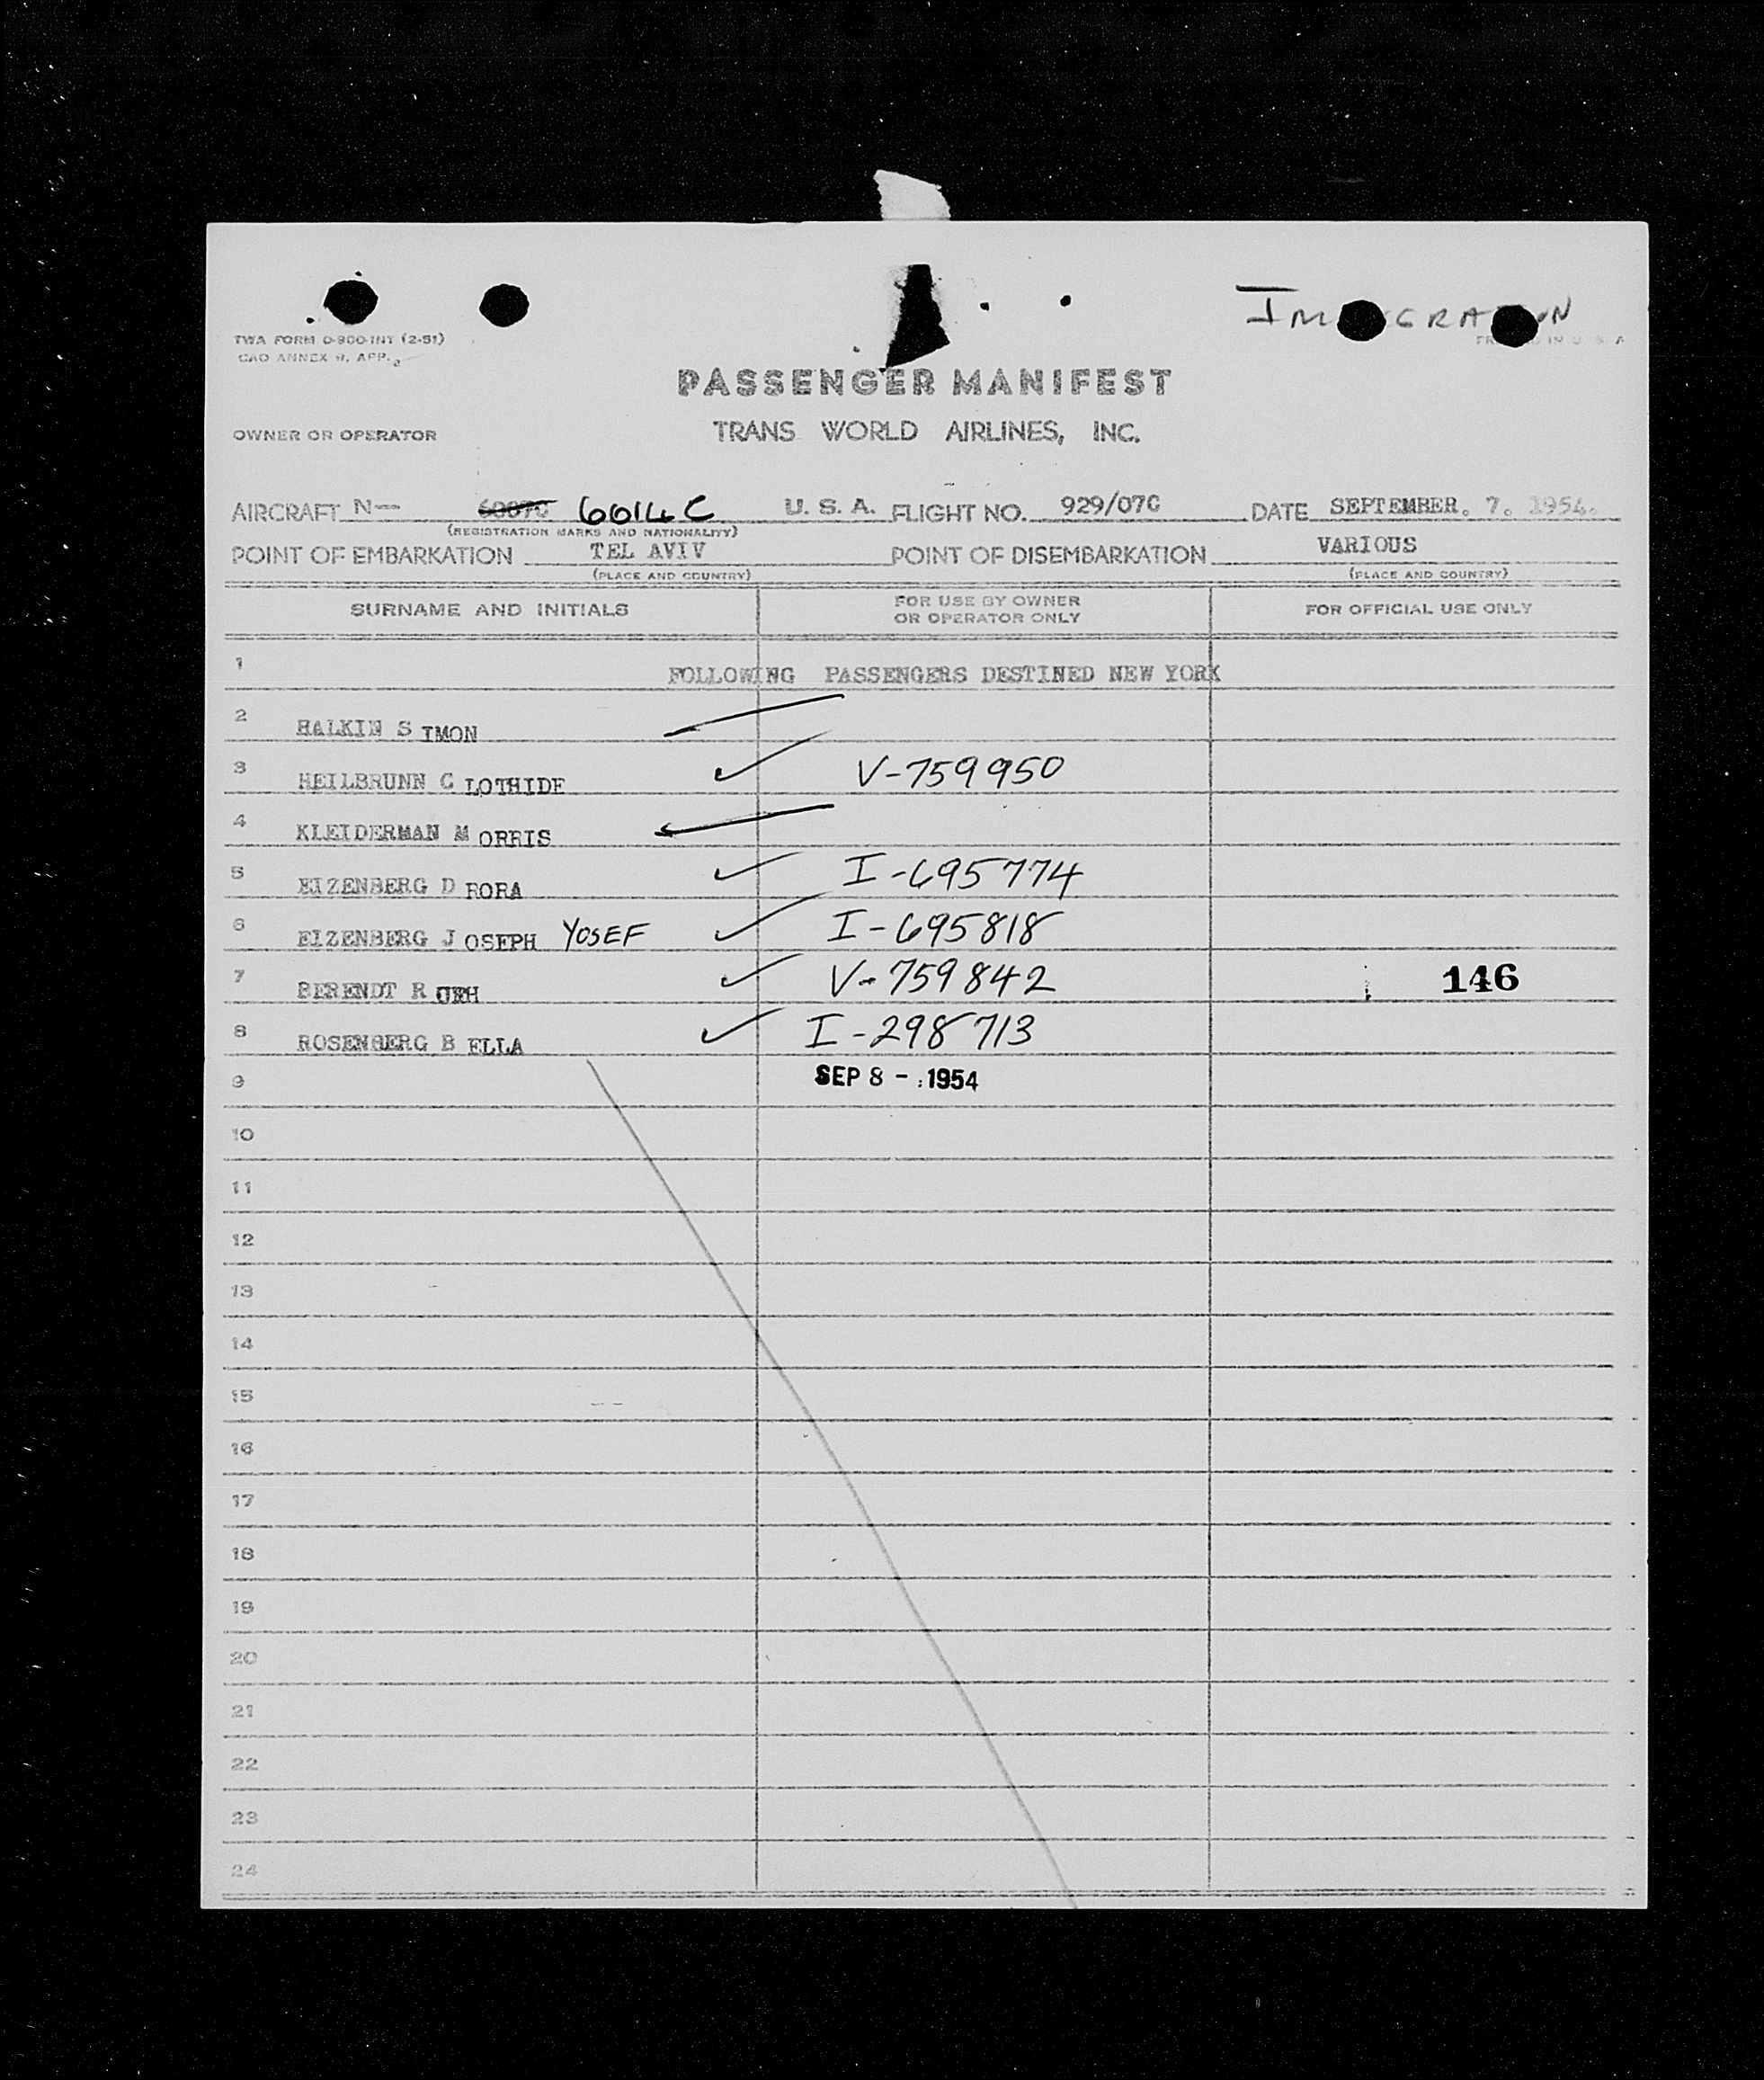 IMMIGRATION
TWA FORM O-900-INT (2-51)
CAO ANNEX 9, APP.
PASSENGER MANIFEST
OWNER OR OPERATOR TRANS WORLD AIRLINES, INC.
AIRCRAFT N— 6007C 6014C U. S. A. FLIGHT NO. 929/07C DATE SEPTEMBER. 7. 1954.
(REGISTRATION MARKS AND NATIONALITY)
POINT OF EMBARKATION TEL AVIV POINT OF DISEMBARKATION VARIOUS
(PLACE AND COUNTRY) (PLACE AND COUNTRY)
SURNAME AND INITIALS FOR USE BY OWNER OR OPERATOR ONLY FOR OFFICIAL USE ONLY
1 FOLLOWING PASSENGERS DESTINED NEW YORK
2 HALKIN S IMON
3 HEILBRUNN C LOTHIDE V-759950
4 KLEIDERMAN M ORRIS
5 EIZENBERG D RORA I-695774
6 EIZENBERG J OSEPH YOSEF I-695818
7 BERENDT R V-759842 146
8 ROSENBERG B ELLA I-298713
9 SEP 8 - 1954
10
11
12
13
14
15
16
17
18
19
20
21
22
23
24